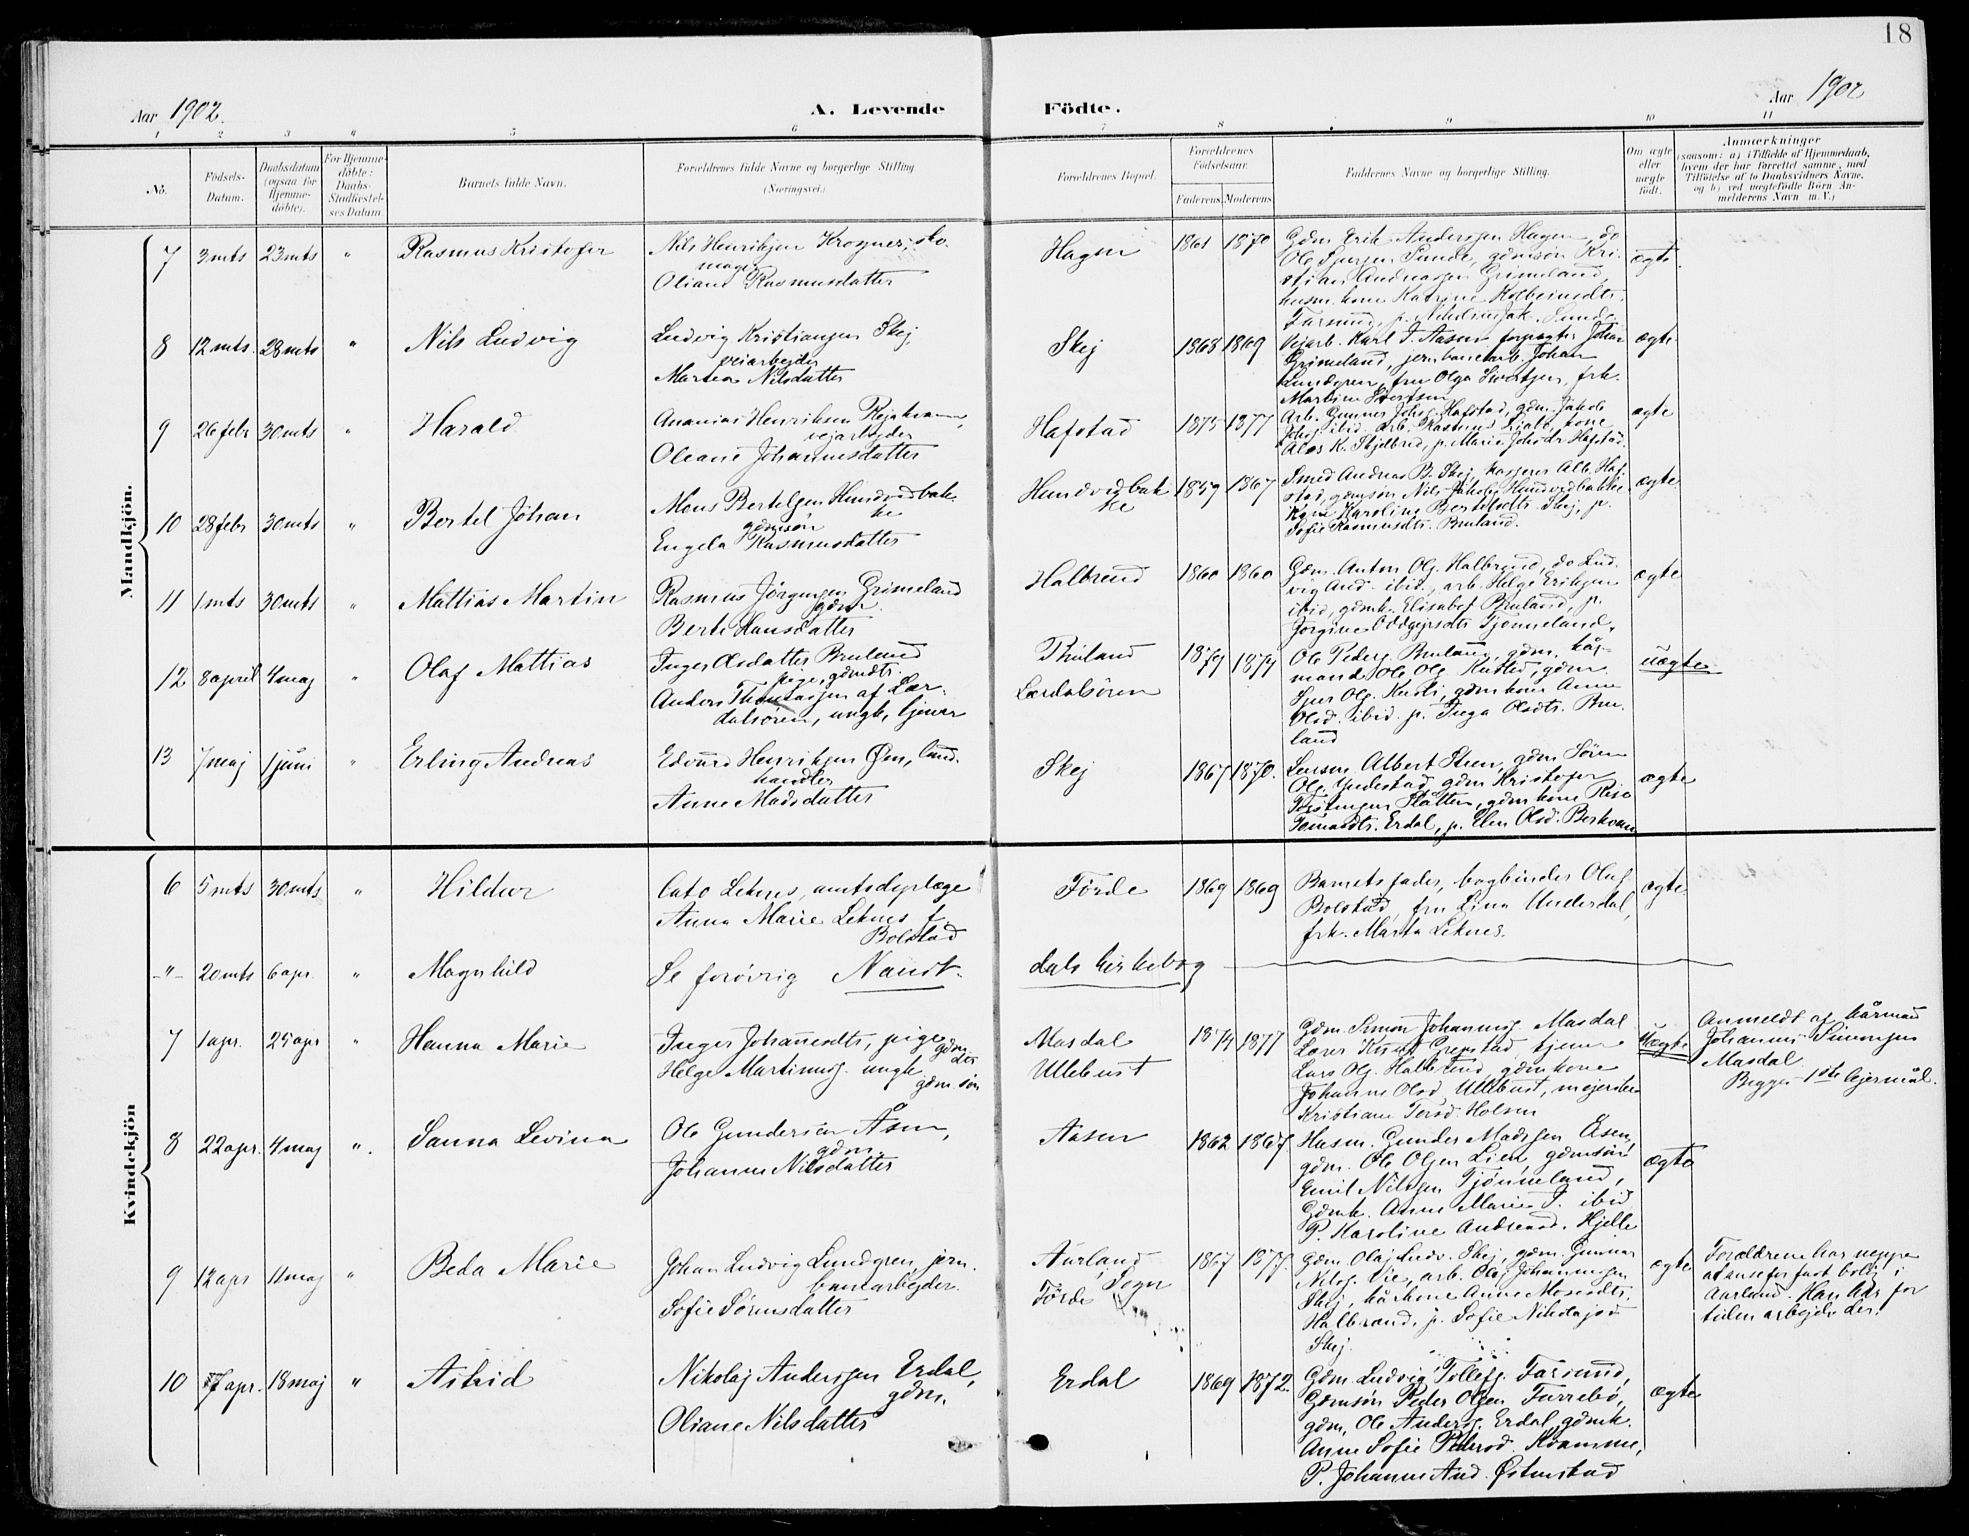 18
Aar 1902.
A. Levende
Födte.
Aar 1902
1 2 3 4 5 6
7 8 9 10 11
No.
Födsels-Datum.
Daabsdatum (ogsaa for Hjemme-döbte).
For Hjemme-döbte: Daabs-Stadfæstel-ses Datum
Barnets fulde Navn.
Forældrenes fulde Navne og borgerlige Stilling
(Næringsvei.)
Forældrenes Bopæl.
Forældrenes Födselsaar.
Faderens. Moderens.
Faddernes Navne og borgerlige Stilling.
Om ægte eller uægte födt.
Anmærkninger
(saasom: a) i Tilfælde af Hjemmedaab,
hvem der har forrettet samme, med
Tilföielse af to Daabsvidners Navne,
og b) ved uægtefödte Börn An-
melderens Navn m. V.)
Mandkjön.
7 3 mts 23 mts " Rasmus Kristofer
Nils Henriksen Krogner, sko-
mager
Oliane Rasmusdatter
Hagen 1861 1870
Gdm. Erik Andersen Hagen, do
Ole Sjursen Sunde, gdmsön Kri-
stian Andreassen Grimeland,
husm. kone Katrine Kolbeinsdtr.
Farsund, p.
ægte.
8 12 mts. 28 mts " Nils Ludvig
Ludvig Kristiansen Skej
veiarbejder
Martea Nilsdatter
Skej 1868 1869
Vejarb. Karl J. Aasen, forpagter Johan
Grimeland, jernbanearb. Johan
Lundgren, fru Olga Sivertsen, frk.
Martine Sivertsen
ægte
9 26 febr 30 mts " Harald
Ananias Henriksen
vejarbejder
Oleane Johannesdatter
Hafstad 1875 1877
Arb. Gunnar Johs. Hafstad, gdm. Jakob
Johs. ibid, arb. Rasmus kone
K. Skjelbred, p. Marie Hafstad.
ægte
10 28 febr 30 mts " Bertel Johan
Mons Bertelsen Hundvidbak-
ke
gdmsön
Engela Rasmusdatter
Hundvidbak
ke 1859 1867
Smed Andreas B. Skej, kasserer Alb. Haf-
stad, gdmsön Nils Jakobs. Hundvidbakke,
Karoline Bertelsdtr. Skej, p.
Sofie Rasmusdtr. Bruland.
ægte
11 1 mts 30 mts " Mattias Martin
Rasmus Jørgensen Grimeland
gdm.
Berte Hansdatter
Halbrend 1860 1860
Gdm. Anton Ols. Halbrend, do Lud-
vig And. ibid., arb. Helge Eriksen
ibid, gdmk. Elisabet Bruland, p.
Jørgine Oddgejrsdtr Tjønneland.
ægte
12 8 april 4 maj " Olaf Mattias
Inger Olsdatter Bruland
pige, gdmdtr.
Anders Thomassen af Lær-
dalsören, ungk, tjener
Bruland
Lærdalsören 1879 1879
Ole Peders. Bruland, gdm. kår-
mand Ole Ols. gdm
Sjur Ols. gdm kone Anne
Olsd. ibid. p. Inga Olsdtr. Bru-
land
uægte
13 7 maj 1 juni " Erling Andreas
Edvard Henriksen Øen, land-
handler
Anne Madsdatter
Skej 1867 1870.
Lensm. Albert Steen, gdm Sören
Ols. gdm Kristofer
gdm kone
Erdal, p. Elen Olsd.
ægte
Kvindekjön
6 5 mts 30 mts " Hildur
Cato Leknes, amtsdyrlæge
Anna Marie Leknes f.
Bolstad
Förde 1869 1869
Barnets fader, bogbinder Olaf
Bolstad, fru Lina Underdal,
frk. Marta Leknes.
ægte.
-"- 20 mts 6 apr. " Magnhild
Se forövrig Naust-
dals kirkebog
7 1 apr. 25 apr " Hanna Marie
Inger Johannesdtr, pige gdm
dtr
Helge Martinus. ungk.
gdm. sön
Masdal
Ullebust 1874 1877
Gdm. Simon Johannes. Masdal
Lærer Knut Grepstad, tjener
Lars Ols. Halbrend, gdm kone
Johanne Olsd. Ullebust, mejerske
Kristiane Holsen
uægte
Anmeldt af kårmand
Johannes Simonsen
Masdal
Begges 1ste lejermål.
8 22 apr. 4 maj ". Sanna Levina
Ole Gundersen Åsen,
gdm.
Johanne Nilsdatter
Aasen 1862 1867.
Husm. Gunder Madsen Åsen,
gdm. Ole Olsen Lien, gdmsön
Emil Nilsen Tjønneland,
Gdmk. Anne Marie T. ibid
P. Karoline Andreasd. Hjelle
ægte
9 12 apr 11 maj " Beda Marie
Johan Ludvig Lundgren, jern-
banearbejder.
Sofie Sörensdatter
Aurland
Sogn
Förde 1867 1877.
Gdm. Olaf Ludv. Skej, gdm. Gunnar
Nils. Vie, arb. Ole Johannesen
Skej, kårkone Anne Monsdtr.
Halbrend, p. Sofie Nikolajsd
Skej.
ægte
Forældrene har neppe
at anse for fast bolig i
Aurland. Han har for
tiden arbejde der.
10 7 apr. 18 maj " Astrid
Nikolaj Andersen Erdal,
gdm.
Oliane Nilsdatter
Erdal 1869 1872.
Gdm. Ludvig Tollefs. Farsund,
Gdmsön Peder Olsen Farrebö,
gdm, Ole Anders. Erdal, gdmk.
Anne Sofie Pedersd. Kvamme,
P. Johanne And. Østenstad
ægte